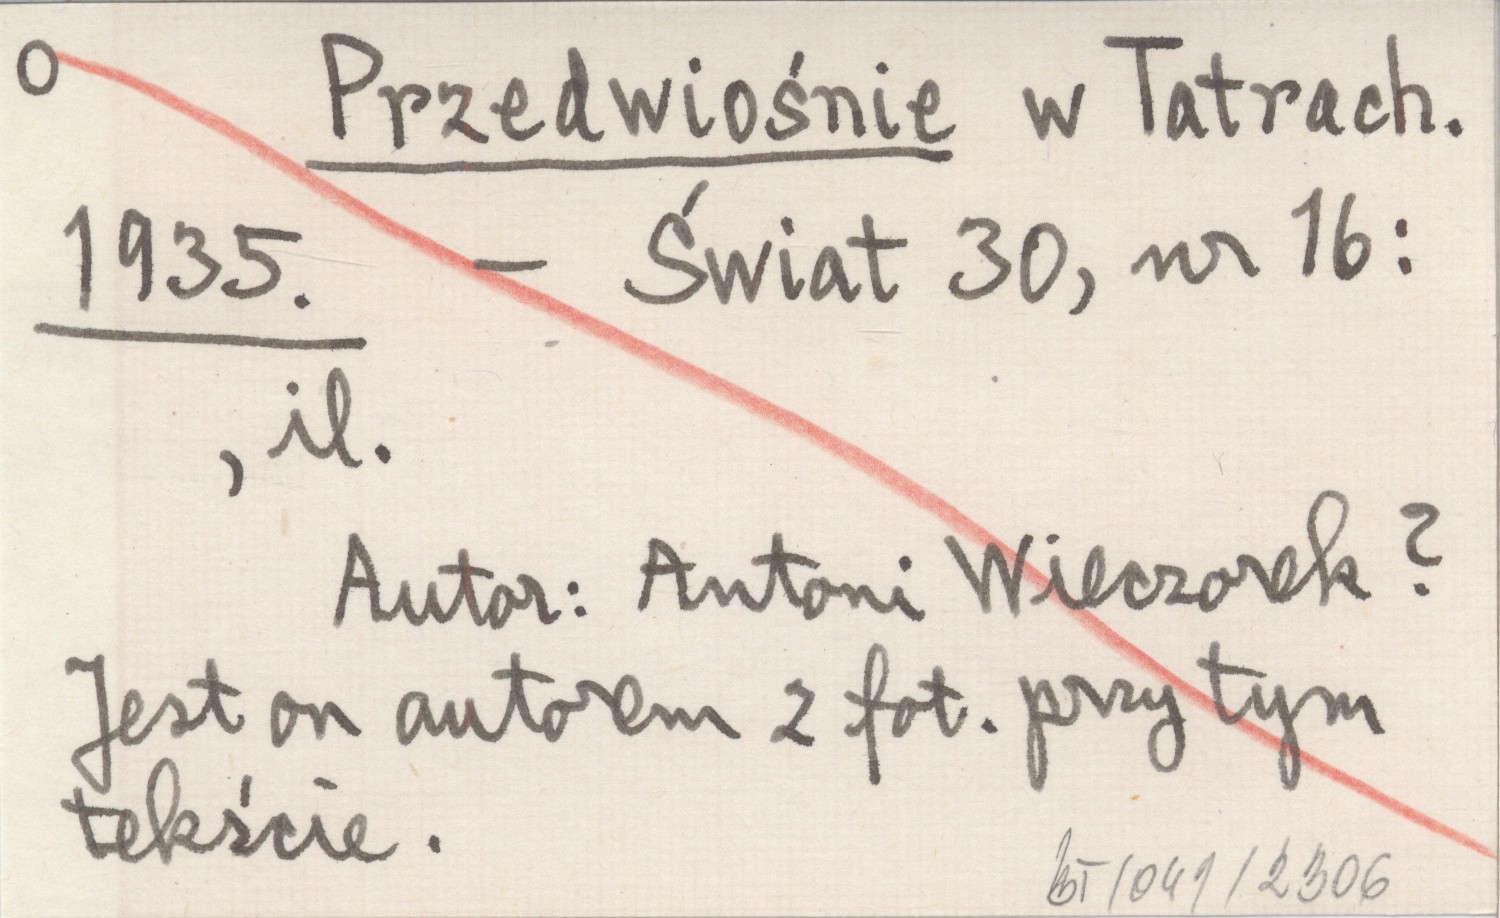 O Przedwiośnie w Tatrach.
1935. – Świat 30, nr 16:
, il.
Autor: Antoni Wieczorek?
Jest on autorem 2 fot. przy tym
tekście.
/041/2306